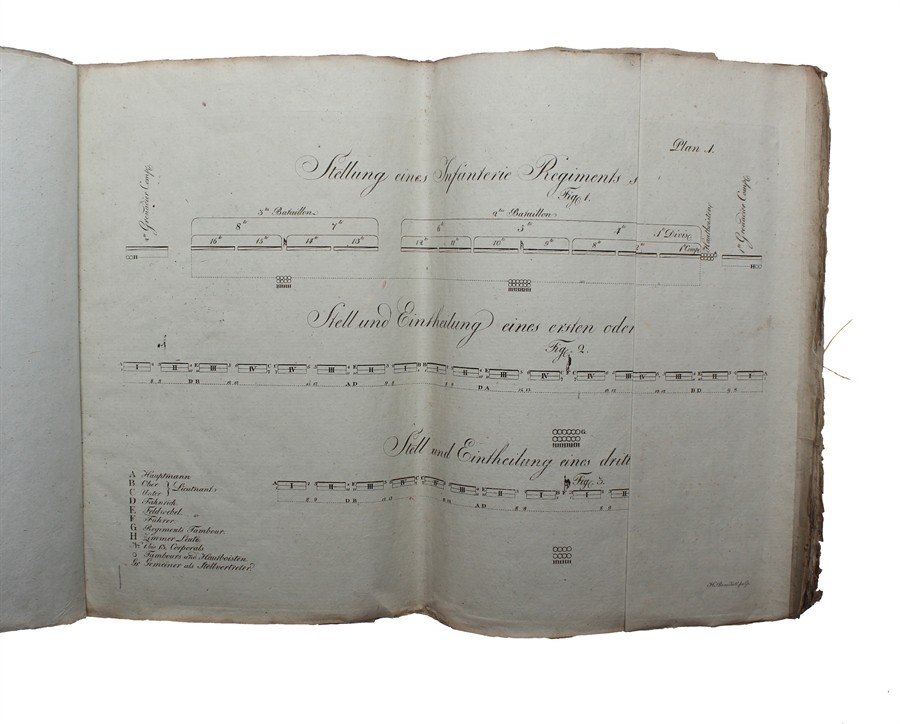 Plan 1.
Stellung eines Infanterie Regiments s
Fig. 1.
2te Grenadier Comp.
3tes Bataillon
2tes Bataillon
Hautboisten
1te Grenadier Comp.
8te 7te 6te 5te 4te 1te Divis.
16te 15te 14te 13te 12te 11te 10te 9te 8te 1te Comp.
Stell und Eintheilung eines ersten oder
Fig. 2.
I II III IV IV III II I I II III IV IV III II I
D B A D D A B D
G
Stell und Eintheilung eines dritt
Fig. 3.
A I II III IV IV III II I F I II
D B A D
A Hauptmann
B Ober } Lieutenants
C Unter
D Fähnrich.
E Feldwebel.
F Führer.
G Regiments Tambour.
H Zimmer-Leute.
1 bis 15. Corporals
Tambours und Hautboisten.
Ge Gemeiner als Stellvertreter.